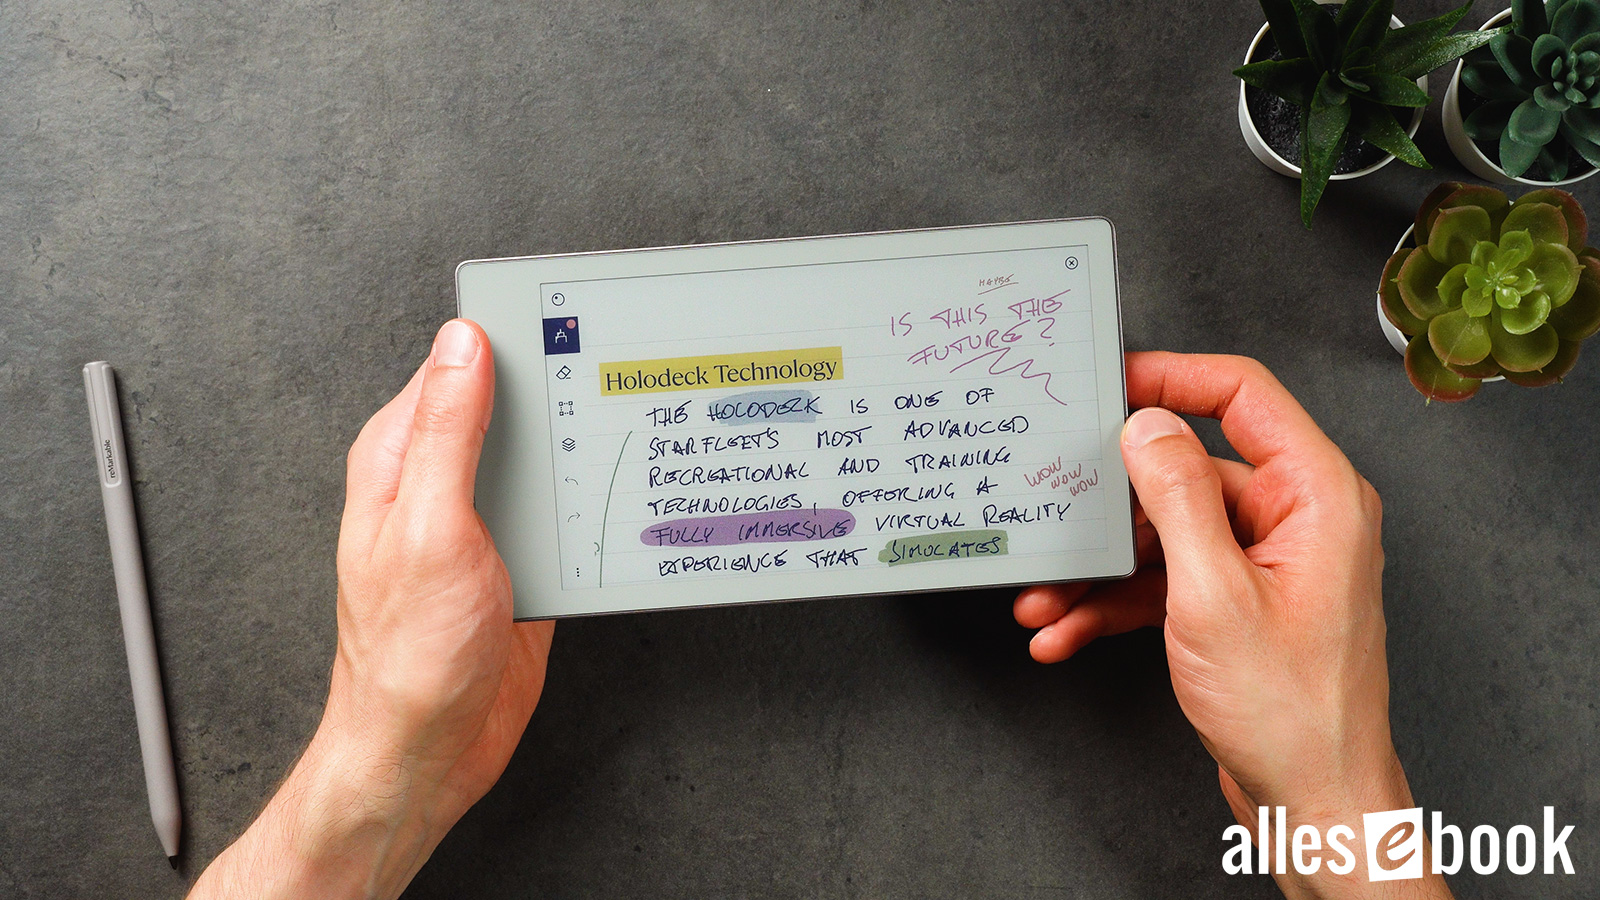 reMarkable
MAYBE
IS THIS THE
FUTURE?
Holodeck Technology
THE HOLODECK IS ONE OF
STARFLEET'S MOST ADVANCED
RECREATIONAL AND TRAINING
TECHNOLOGIES, OFFERING A
WOW
WOW
WOW
FULLY IMMERSIVE VIRTUAL REALITY
EXPERIENCE THAT SIMULATES
allesebook